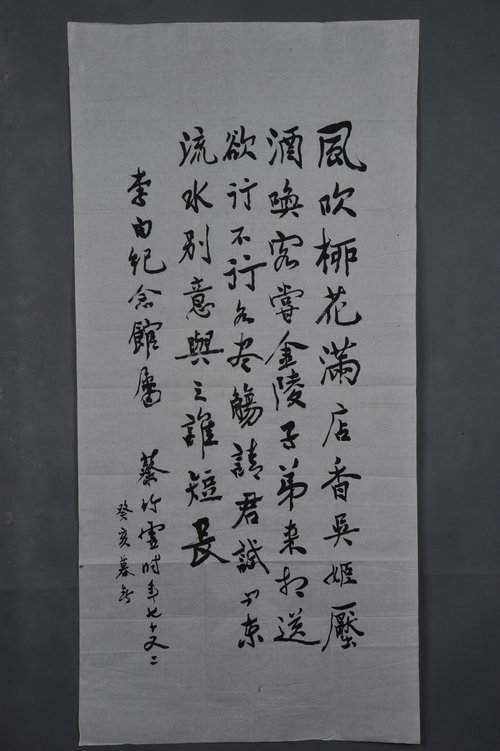 風吹柳花滿店香吳姬壓
酒喚客嘗金陵子弟来相送
欲行不行各尽觴請君試问東
流水别意與之誰短長
李白纪念館屬
蔡竹时年七十又二
癸亥暮